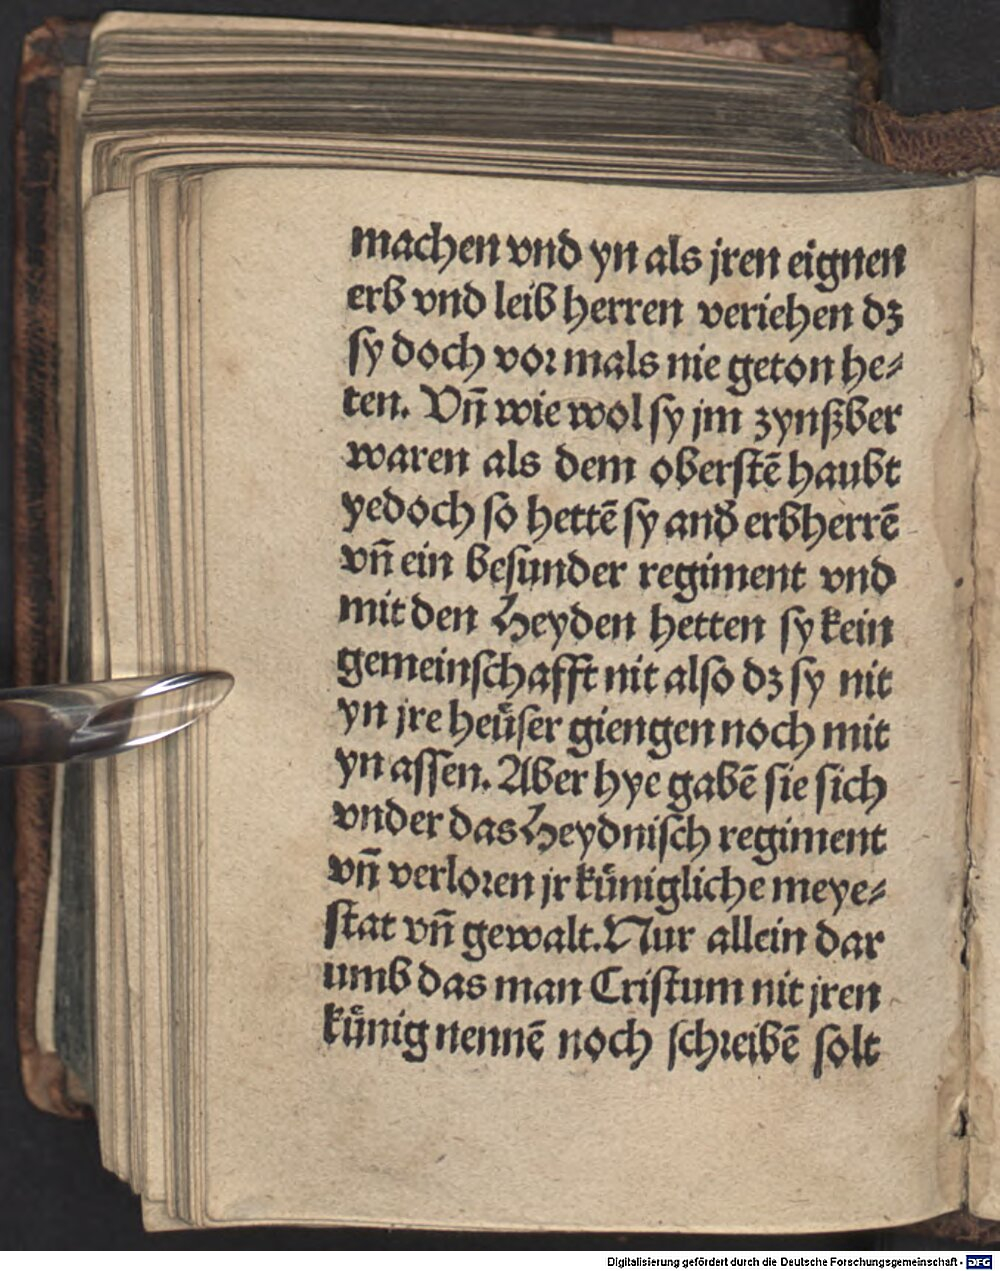 machen vnd yn als jren eignen
erb vnd leib herren veriehen dꝫ
sy doch vor mals nie geton he⸗
ten. Vn̄ wie wol sy jm zynßber
waren als dem oberstē haubt
yedoch so hettē sy and̕ erbherrē
vn̄ ein besunder regiment vnd
mit den Heyden hetten sy kein
gemeinschafft nit also dꝫ sy nit
yn jre heüser giengen noch mit
yn assen. Aber hye gabē sie sich
vnder das Heydnisch regiment
vn̄ verloren jr künigliche meye⸗
stat vn̄ gewalt. Nur allein dar
umb das man Cristum nit jren
künig nennē noch schreibē solt
Digitalisierung gefördert durch die Deutsche Forschungsgemeinschaft - DFG